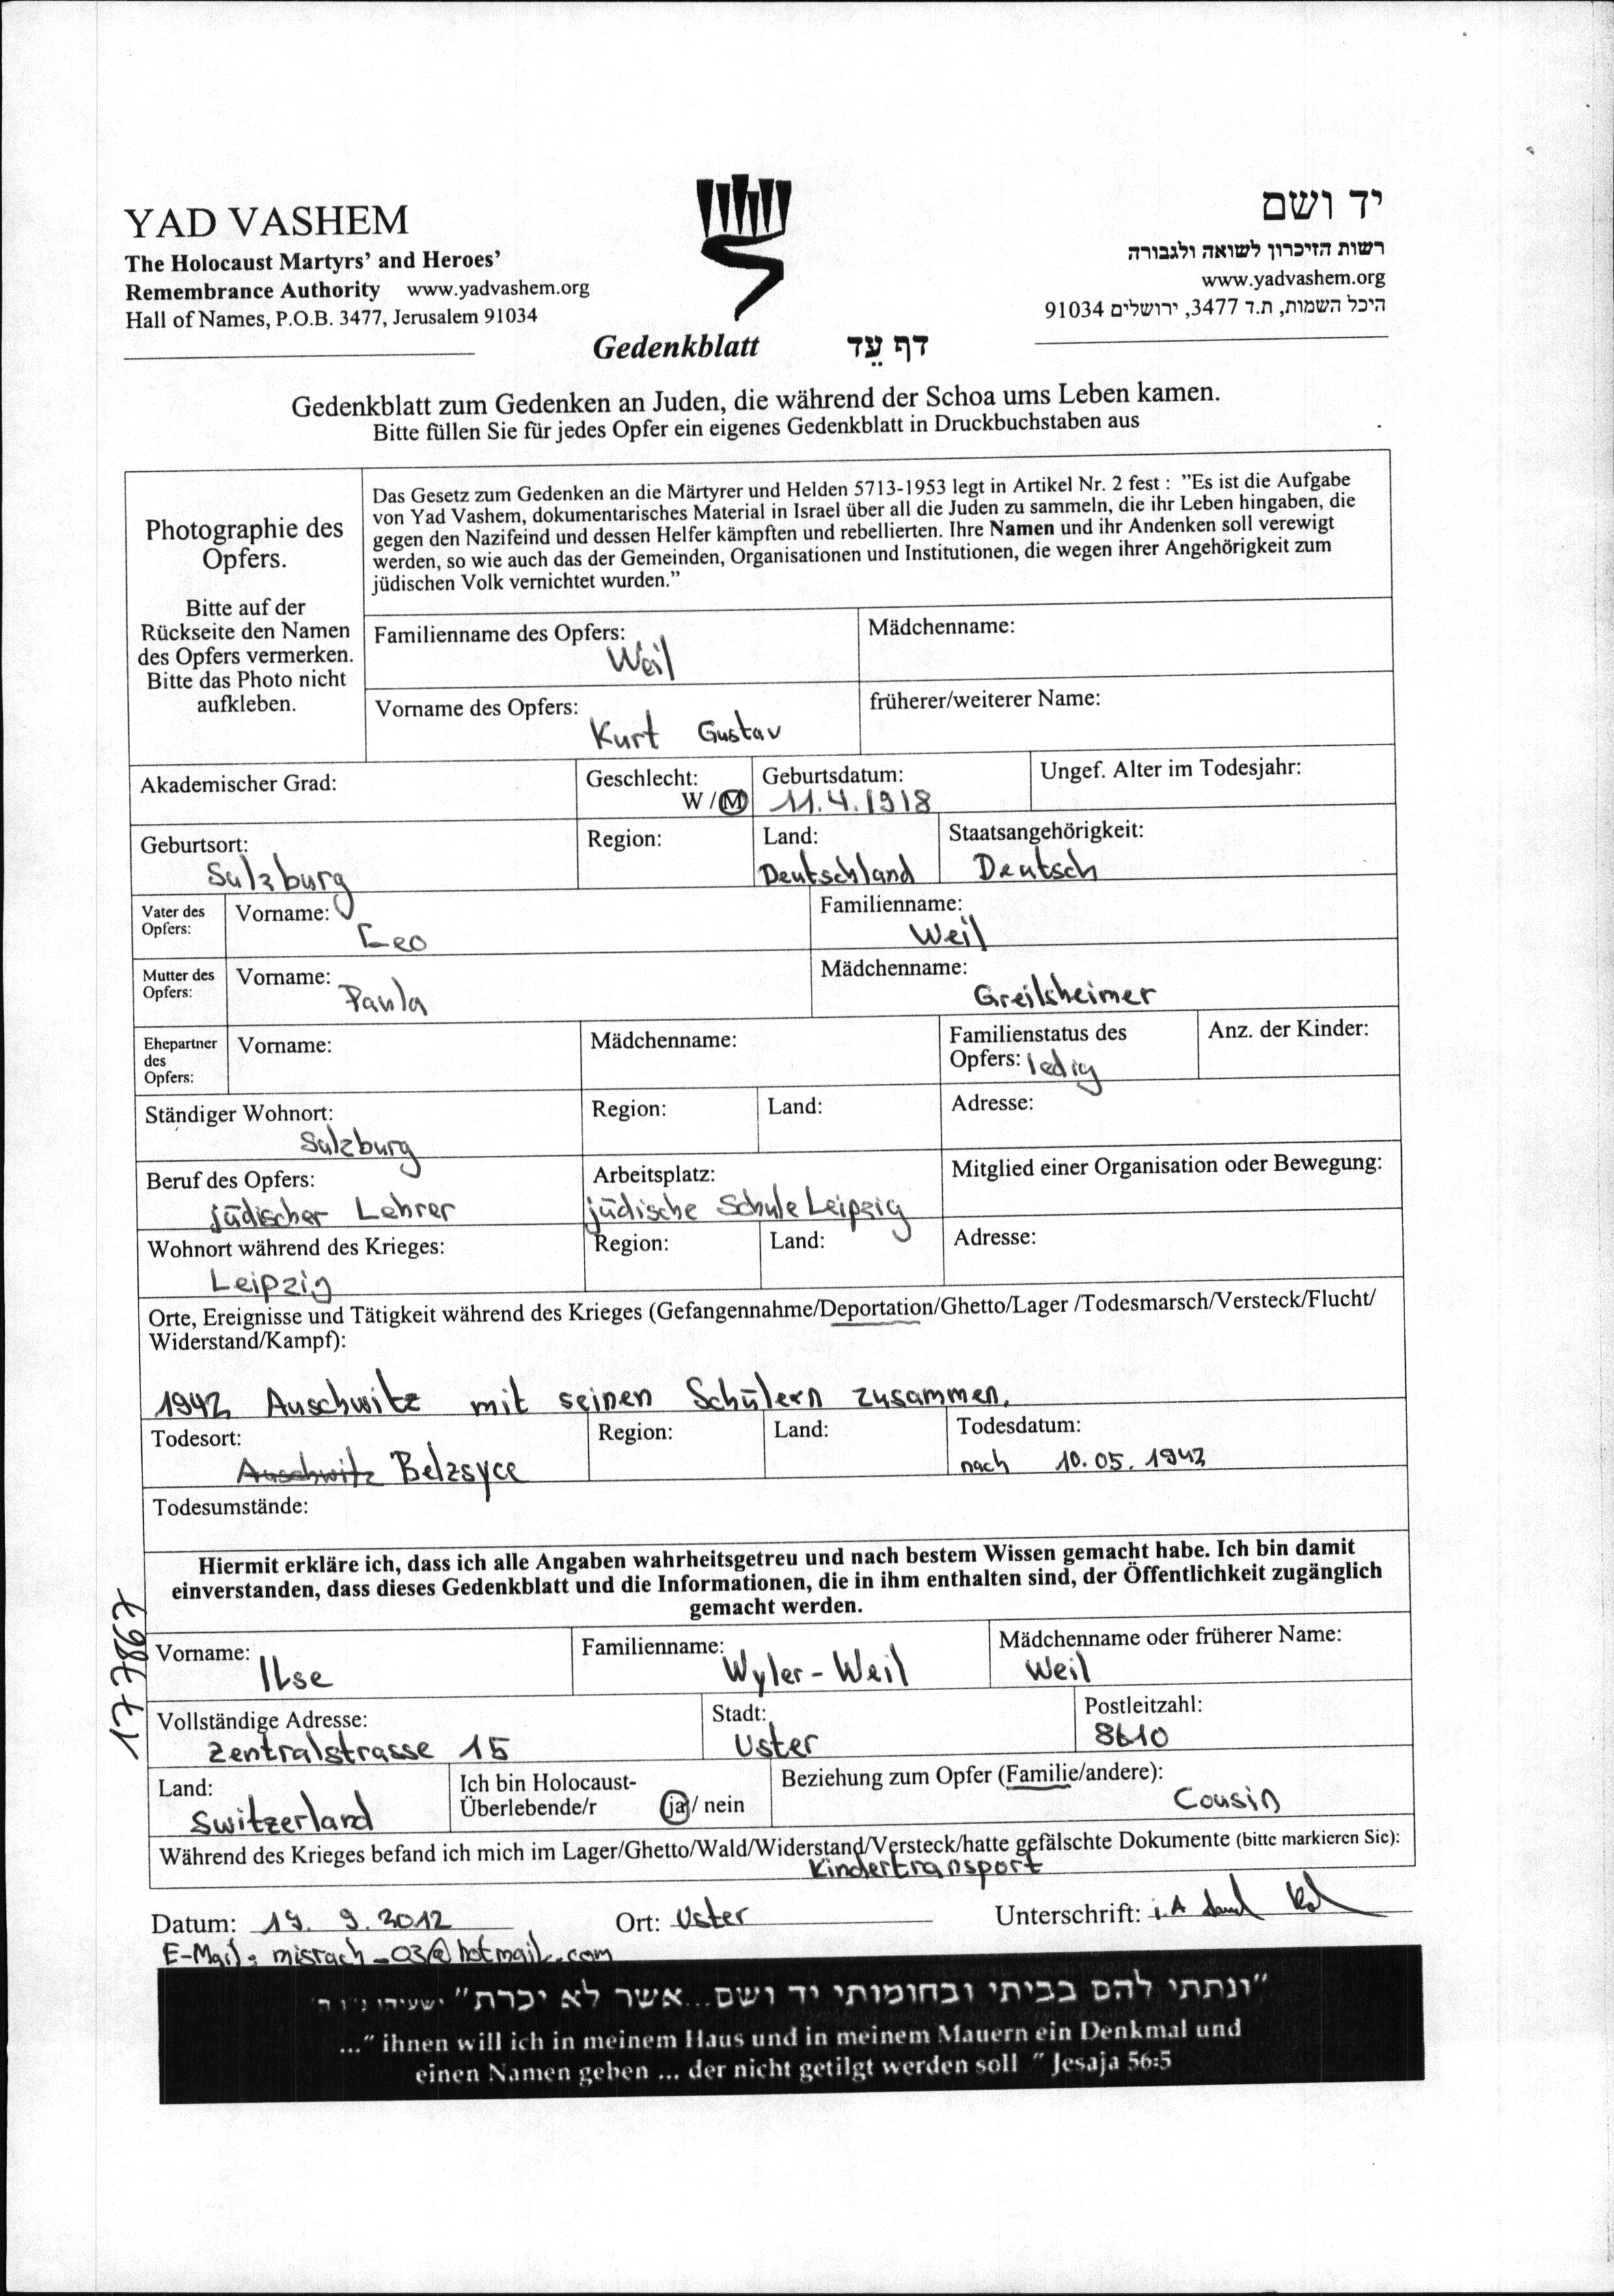 YAD VASHEM
The Holocaust Martyrs' and Heroes'
Remembrance Authority www.yadvashem.org
Hall of Names, P.O.B. 3477, Jerusalem 91034
יד ושם
רשות הזיכרון לשואה ולגבורה
www.yadvashem.org
היכל השמות, ת.ד 3477, ירושלים 91034
Gedenkblatt דף עֵד
Gedenkblatt zum Gedenken an Juden, die während der Schoa ums Leben kamen.
Bitte füllen Sie für jedes Opfer ein eigenes Gedenkblatt in Druckbuchstaben aus
Photographie des
Opfers.
Bitte auf der
Rückseite den Namen
des Opfers vermerken.
Bitte das Photo nicht
aufkleben.
Das Gesetz zum Gedenken an die Märtyrer und Helden 5713-1953 legt in Artikel Nr. 2 fest : "Es ist die Aufgabe
von Yad Vashem, dokumentarisches Material in Israel über all die Juden zu sammeln, die ihr Leben hingaben, die
gegen den Nazifeind und dessen Helfer kämpften und rebellierten. Ihre Namen und ihr Andenken soll verewigt
werden, so wie auch das der Gemeinden, Organisationen und Institutionen, die wegen ihrer Angehörigkeit zum
jüdischen Volk vernichtet wurden."
Familienname des Opfers: Mädchenname:
Weil
Vorname des Opfers: früherer/weiterer Name:
Kurt Gustav
Akademischer Grad: Geschlecht: Geburtsdatum: Ungef. Alter im Todesjahr:
W / M 11.4.1918
Geburtsort: Region: Land: Staatsangehörigkeit:
Sulzburg Deutschland Deutsch
Vater des
Opfers:
Vorname: Familienname:
Leo Weil
Mutter des
Opfers:
Vorname: Mädchenname:
Paula Greilsheimer
Ehepartner
des
Opfers:
Vorname: Mädchenname: Familienstatus des
Opfers: ledig
Anz. der Kinder:
Ständiger Wohnort: Region: Land: Adresse:
Sulzburg
Beruf des Opfers: Arbeitsplatz: Mitglied einer Organisation oder Bewegung:
jüdischer Lehrer jüdische Schule Leipzig
Wohnort während des Krieges: Region: Land: Adresse:
Leipzig
Orte, Ereignisse und Tätigkeit während des Krieges (Gefangennahme/Deportation/Ghetto/Lager /Todesmarsch/Versteck/Flucht/
Widerstand/Kampf):
1942 Auschwitz mit seinen Schülern zusammen.
Todesort: Region: Land: Todesdatum:
Auschwitz Belzsyce nach 10.05.1942
Todesumstände:
Hiermit erkläre ich, dass ich alle Angaben wahrheitsgetreu und nach bestem Wissen gemacht habe. Ich bin damit
einverstanden, dass dieses Gedenkblatt und die Informationen, die in ihm enthalten sind, der Öffentlichkeit zugänglich
gemacht werden.
Vorname: Familienname: Mädchenname oder früherer Name:
Ilse Wyler-Weil Weil
Vollständige Adresse: Stadt: Postleitzahl:
Zentralstrasse 15 Uster 8610
Land: Ich bin Holocaust-
Überlebende/r ja / nein
Beziehung zum Opfer (Familie/andere):
Switzerland Cousin
Während des Krieges befand ich mich im Lager/Ghetto/Wald/Widerstand/Versteck/hatte gefälschte Dokumente (bitte markieren Sie):
Kindertransport
Datum: 19. 9. 2012 Ort: Uster Unterschrift: i.A
E-Mail: misrach_03@hotmail.com
"ונתתי להם בביתי ובחומותי יד ושם...אשר לא יכרת" ישעיהו נ"ו ה'
..." ihnen will ich in meinem Haus und in meinem Mauern ein Denkmal und
einen Namen geben ... der nicht getilgt werden soll " Jesaja 56:5